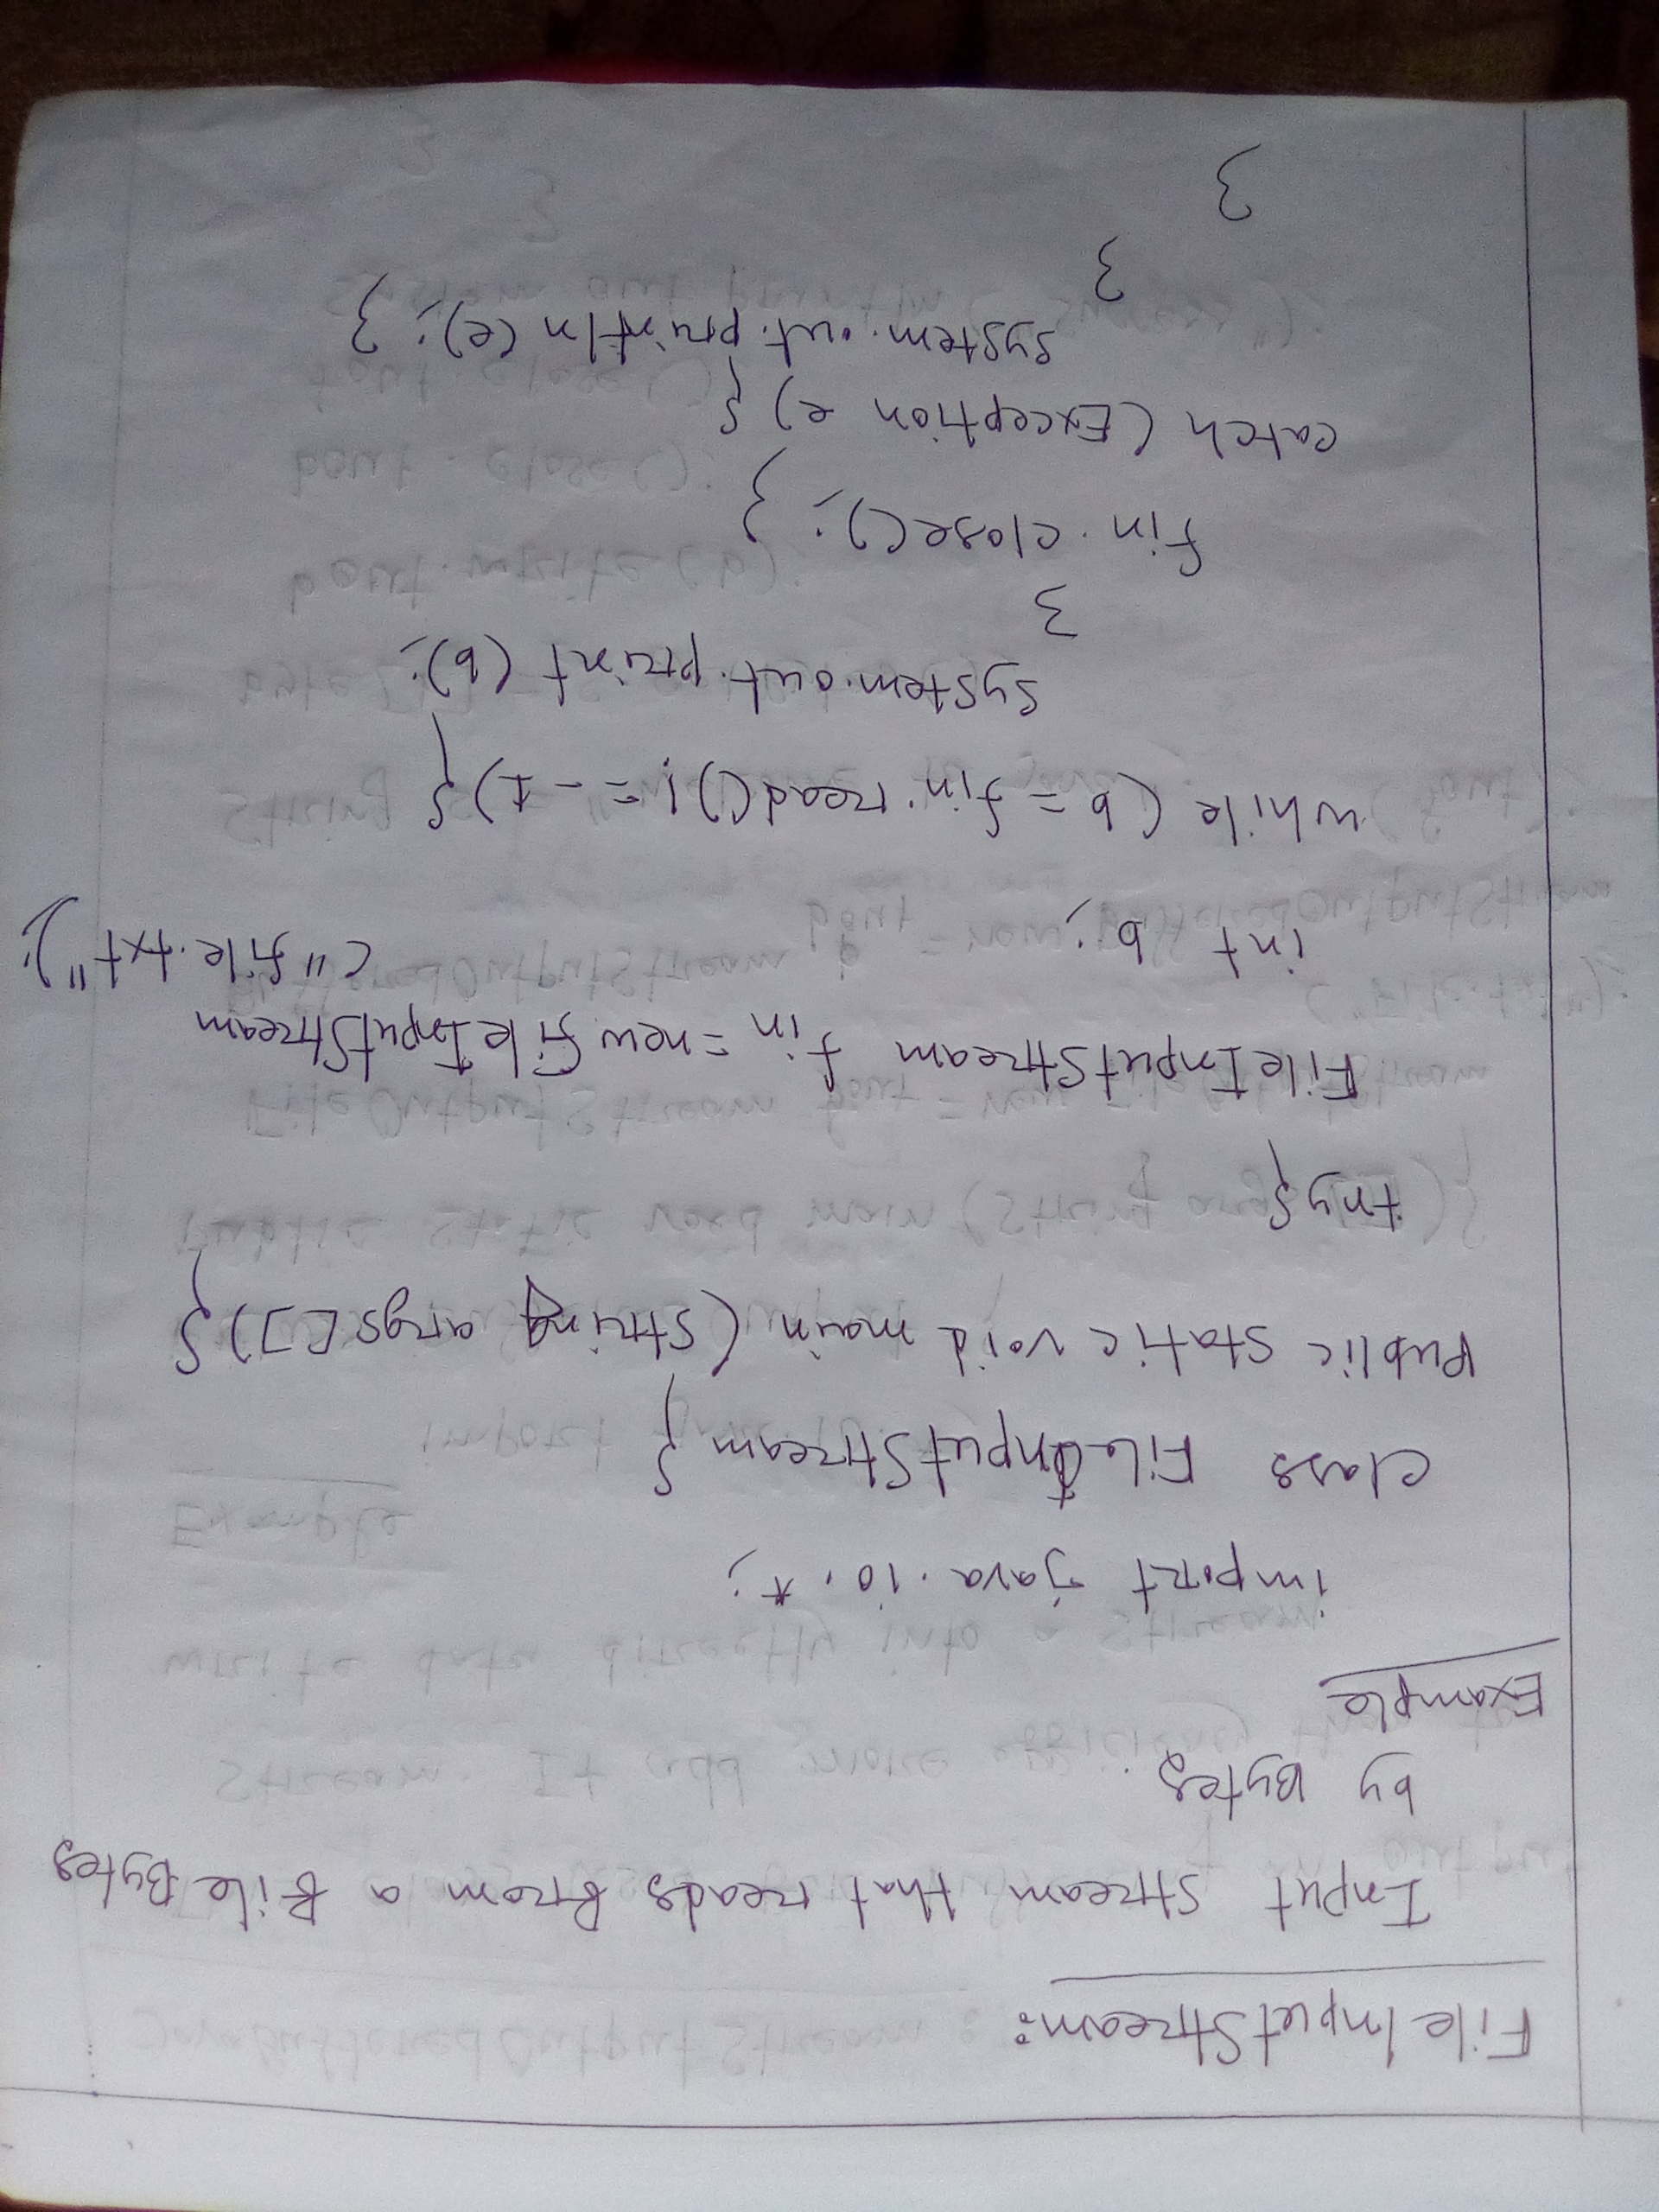 FileInputStream:
Input stream that reads from a file Bytes
by Bytes.
Example
import java.io.*;
class FileInputStream {
Public static void main (String args[]){
try{
FileInputStream fin = new fileInputStream
("file.txt");
int b;
while (b = fin.read() != -1){
system.out.print (b);
}
fin.close(); }
catch (Exception e) {
system.out.println (e); }
}
}